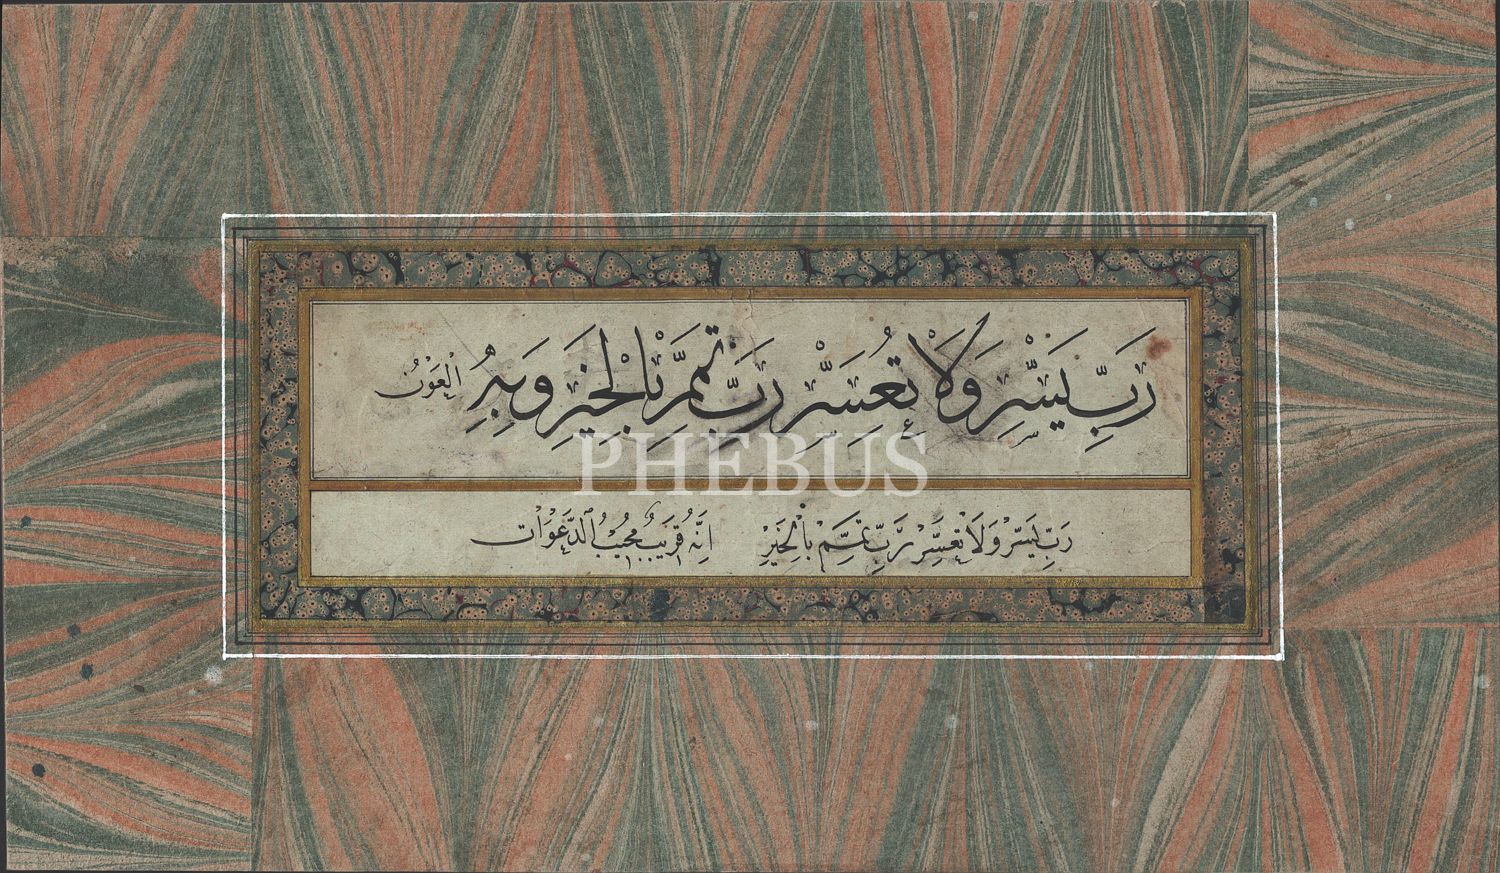 رَبِّ يَسِّرْ وَلَا تُعَسِّرْ رَبِّ تَمِّمْ بِالْخَيْرِ وَبِهِ الْعَوْنُ
PHEBUS
رَبِّ يَسِّرْ وَلَا تُعَسِّرْ رَبِّ تَمِّمْ بِالْخَيْرِ اِنَّهُ قَرِيبٌ مُجِيبُ الدَّعَوَاتِ